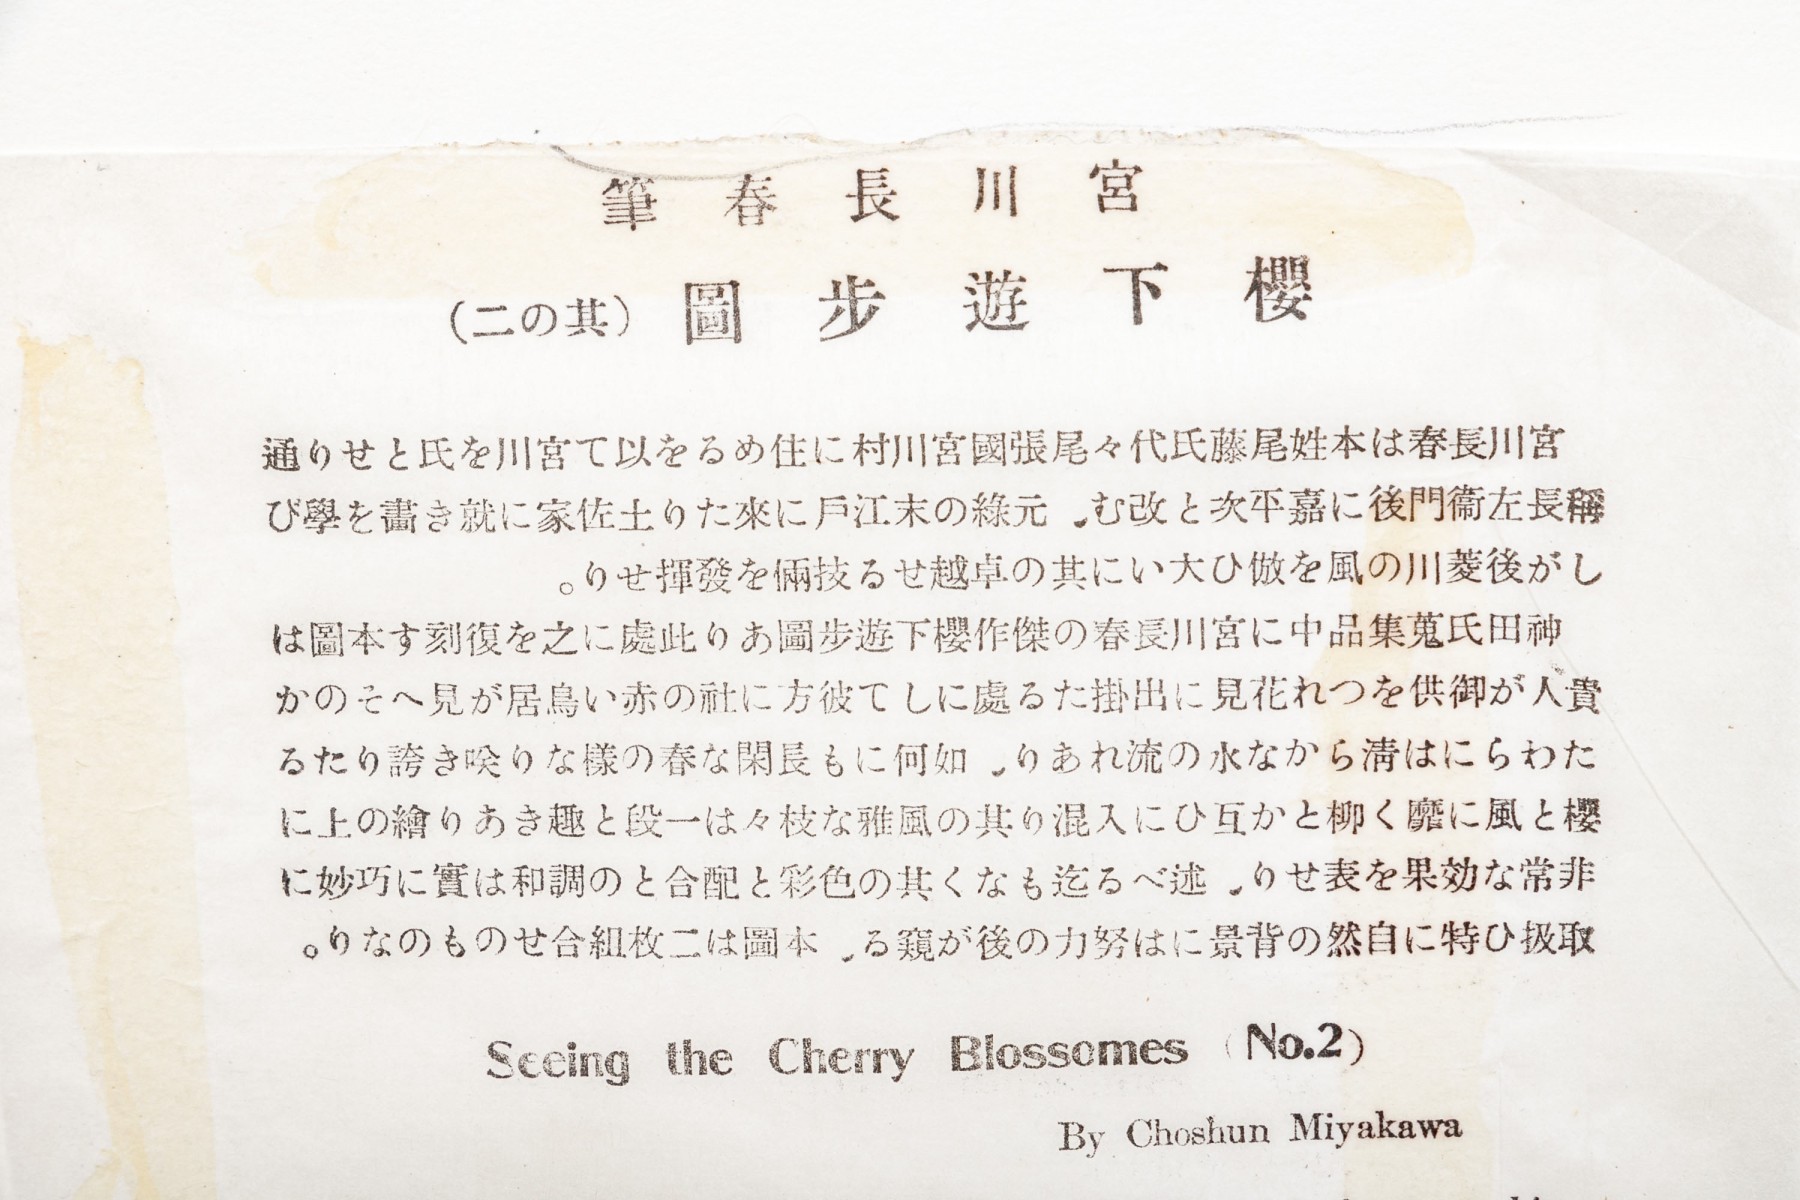 宮川長春筆
櫻下遊歩圖（其の二）
宮川長春は本姓尾藤氏代々尾張國宮川村に住めるを以て宮川を氏とせり通
稱長左衞門後に嘉平次と改む、元綠の末江戸に來たり土佐家に就き畵を學び
しが後菱川の風を倣ひ大いに其の卓越せる技倆を發揮せり。
神田氏蒐集品中に宮川長春の傑作櫻下遊歩圖あり此處に之を復刻す本圖は
貴人が御供をつれ花見に出掛たる處にして彼方に社の赤い鳥居が見へそのか
たわらには淸らかな水の流れあり、如何にも長閑な春の樣なり咲き誇りたる
櫻と風に靡く柳とか互ひに入混り其の風雅な枝々は一段と趣きあり繪の上に
非常な効果を表せり、述べる迄もなく其の色彩と配合との調和は實に巧妙に
取扱ひ特に自然の背景には努力の後が窺る、本圖は二枚組合せのものなり。
Seeing the Cherry Blossomes (No.2)
By Choshun Miyakawa